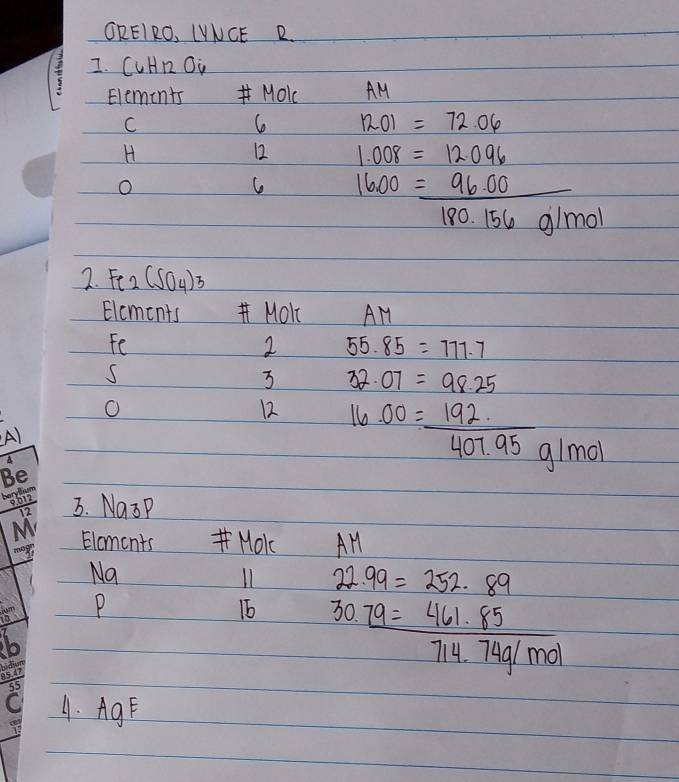 OREIRO, LYNCE R.
1. C6H12O6
Elements # Mole AM
C 6 12.01 = 72.06
H 12 1.008 = 12.096
O 6 16.00 = 96.00
180.156 g/mol
2. Fe2(SO4)3
Elements # Mole AM
Fe 2 55.85 = 777.7
S 3 32.07 = 98.25
O 12 16.00 = 192.
407.95 g/mol
3. Na3P
Elements # Mole AM
Na 11 22.99 = 252.89
P 15 30.79 = 461.85
714.74g/mol
4. AgF
4
Be
beryllium
9.012
12
55